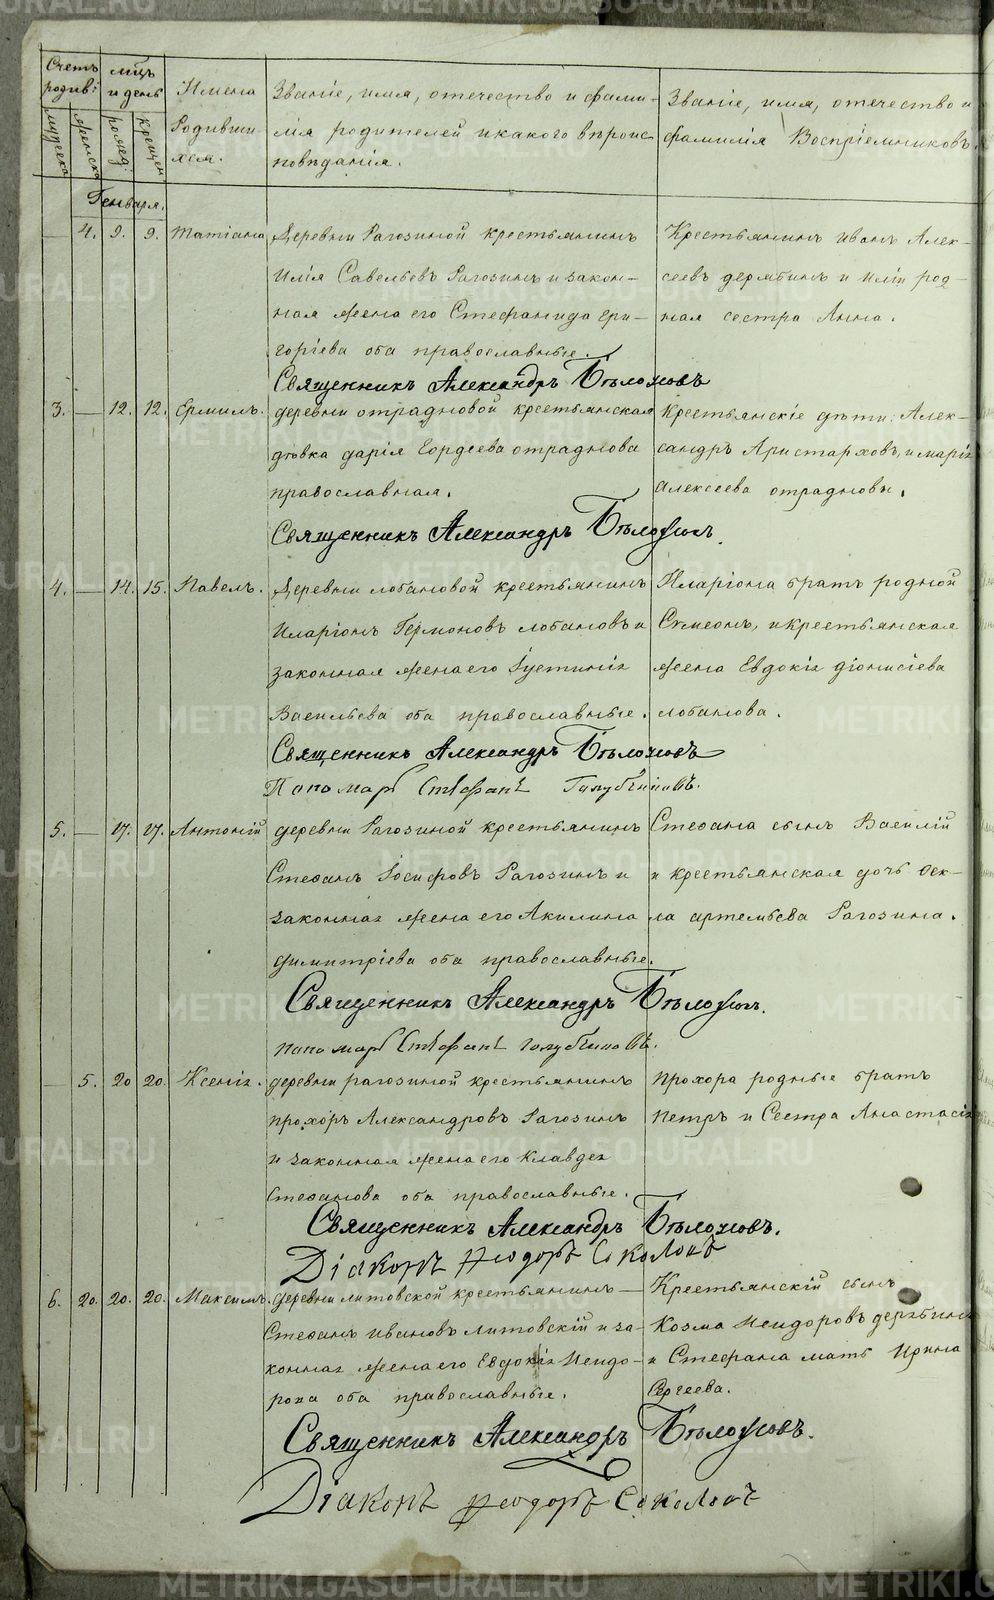 Счетъ родив:
мужеска
женска
мѣсяцъ и день
рожд:
крещен.
Имена Родивших-
ся.
Званіе, имя, отечество и фами-
лія родителей и какого вѣроис-
повѣданія.
Званіе, имя, отечество и
фамилія Воспріемниковъ.
Генваря.
— 4. 9. 9. Татіана Деревни Рагозиной крестьянинъ Крестьянинъ Иванъ Алек-
Илія Савельевъ Рагозинъ и закон- сеевъ дерябинъ и Иліи род-
ная жена его Стефанида Гри- ная сестра Анна.
горіева оба православные.
Священникъ Александръ Бѣлоусовъ
3. — 12. 12. Ермилъ. деревни отрадновой крестьянская Крестьянскіе дѣти: Алек-
дѣвка дарія Гордеева отраднова сандръ Аристарховъ, и марія
православная. Алексеева отрадновы.
Священникъ Александръ Бѣлоусовъ.
4. — 14. 15. Павелъ. Деревни лобановой крестьянинъ Иларіона братъ родной
Иларіонъ Гермоновъ лобановъ и Симеонъ, и крестьянская
законная жена его Іустинія жена Евдокія діонисіева
Васильева оба православные. лобанова.
Священникъ Александръ Бѣлоусовъ
Пономарь Стефанъ Голубчиковъ.
5. — 17. 17. Антоній деревни Рагозиной крестьянинъ Стефана сынъ Василій
Стефанъ Іосифовъ Рагозинъ и и крестьянская дочь Оек-
законная жена его Акилина ла артемьева Рагозина.
димитріева оба православные.
Священникъ Александръ Бѣлоусовъ.
пономарь Стефанъ голубчиковъ.
— 5. 20 20. Ксенія. деревни рагозиной крестьянинъ прохора родные братъ
прохоръ Александровъ Рагозинъ Петръ и Сестра Анастасія
и законная жена его Клавдея
Стефанова оба православные.
Священникъ Александръ Бѣлоусовъ.
Діаконъ Ѳеодоръ Соколовъ
6. 20. 20. 20. Максимъ. деревни литовской крестьянинъ Крестьянскій сынъ
Стефанъ Ивановъ литовскій и за- Козма Исидоровъ дерябинъ
конная жена его Евдокія Исидо- и Стефана мать Ирина
рова оба православные. Сергеева.
Священникъ Александръ Бѣлоусовъ.
Діаконъ Ѳеодоръ Соколовъ
METRIKI.GASO-URAL.RU